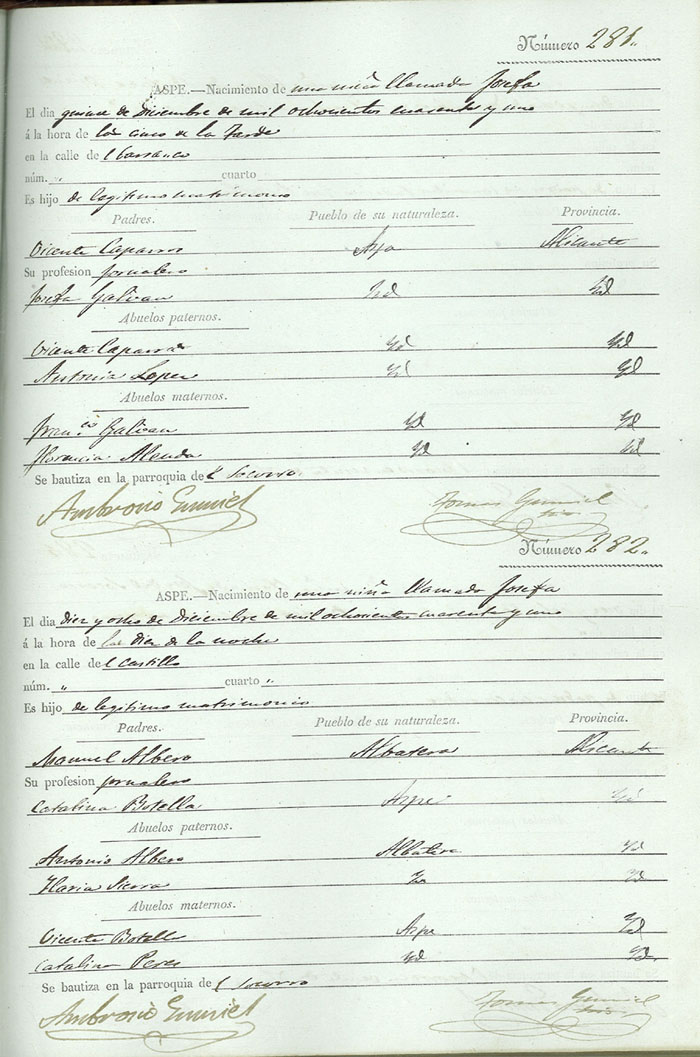 Número 281.
ASPE.—Nacimiento de una niña llamada Josefa
El dia quince de Diciembre de mil ochocientos cuarenta y uno
á la hora de las cinco de la tarde
en la calle del barranco
núm. „ cuarto
Es hijo de legitimo matrimonio
Padres. Pueblo de su naturaleza. Provincia.
Vicente Caparros Aspe Alicante
Su profesion jornalero
Josefa Galvan Yd Yd
Abuelos paternos.
Vicente Caparros Yd Yd
Antonia Lopez Yd Yd
Abuelos maternos.
Fran.co Galvan Yd Yd
Florencia Alenda Yd Yd
Se bautiza en la parroquia del Socorro
Ambrosio Tomas
Número 282.
ASPE.—Nacimiento de una niña llamada Josefa
El dia diez y ocho de Diciembre de mil ochocientos cuarenta y uno
á la hora de las diez de la noche
en la calle del Castillo
núm. „ cuarto „
Es hijo de legitimo matrimonio
Padres. Pueblo de su naturaleza. Provincia.
Manuel Albero Albatera Alicante
Su profesion jornalero
Catalina Botella Aspe Yd
Abuelos paternos.
Antonio Albero Albatera Yd
Maria Sierra Yd Yd
Abuelos maternos.
Vicente Botella Aspe Yd
Catalina Perez Yd Yd
Se bautiza en la parroquia del Socorro
Ambrosio Tomas